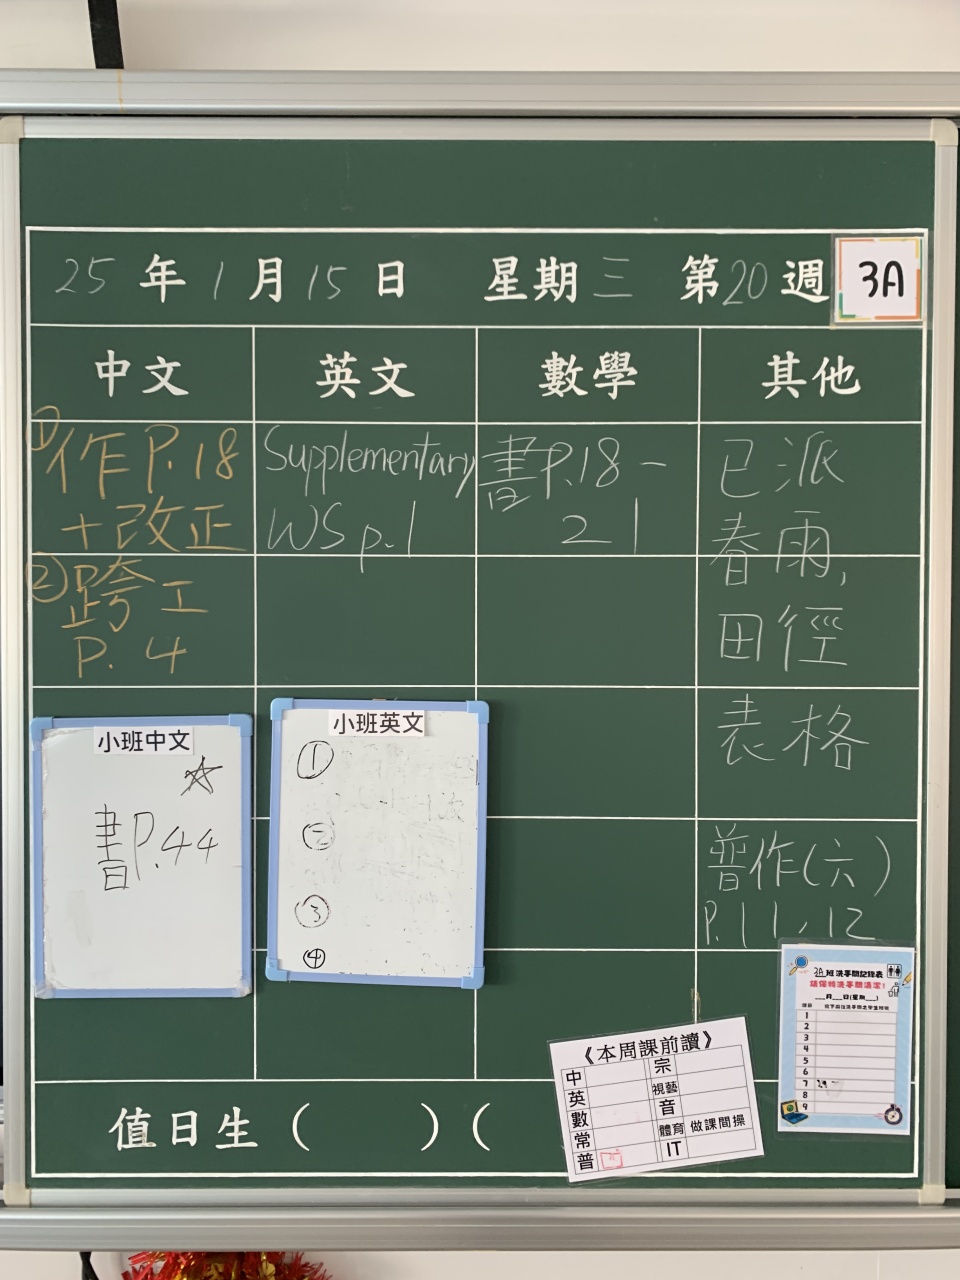 25年1月15日 星期三 第20週 3A
中文 英文 數學 其他
①作P.18
+改正
②跨工
P.4
Supplementary
WS p.1
書P.18-
21
已派
春雨,
田徑
表格
普作(六)
P.11,12
小班中文
☆
書P.44
小班英文
①
②
③
④
3A班洗手間記錄表
請保持洗手間清潔!
__月__日(星期__)
1
2
3
4
5
6
7
8
9
《本周課前讀》
中 宗
英 視藝
數 音
常 體育 做課間操
普 IT
值日生( )(